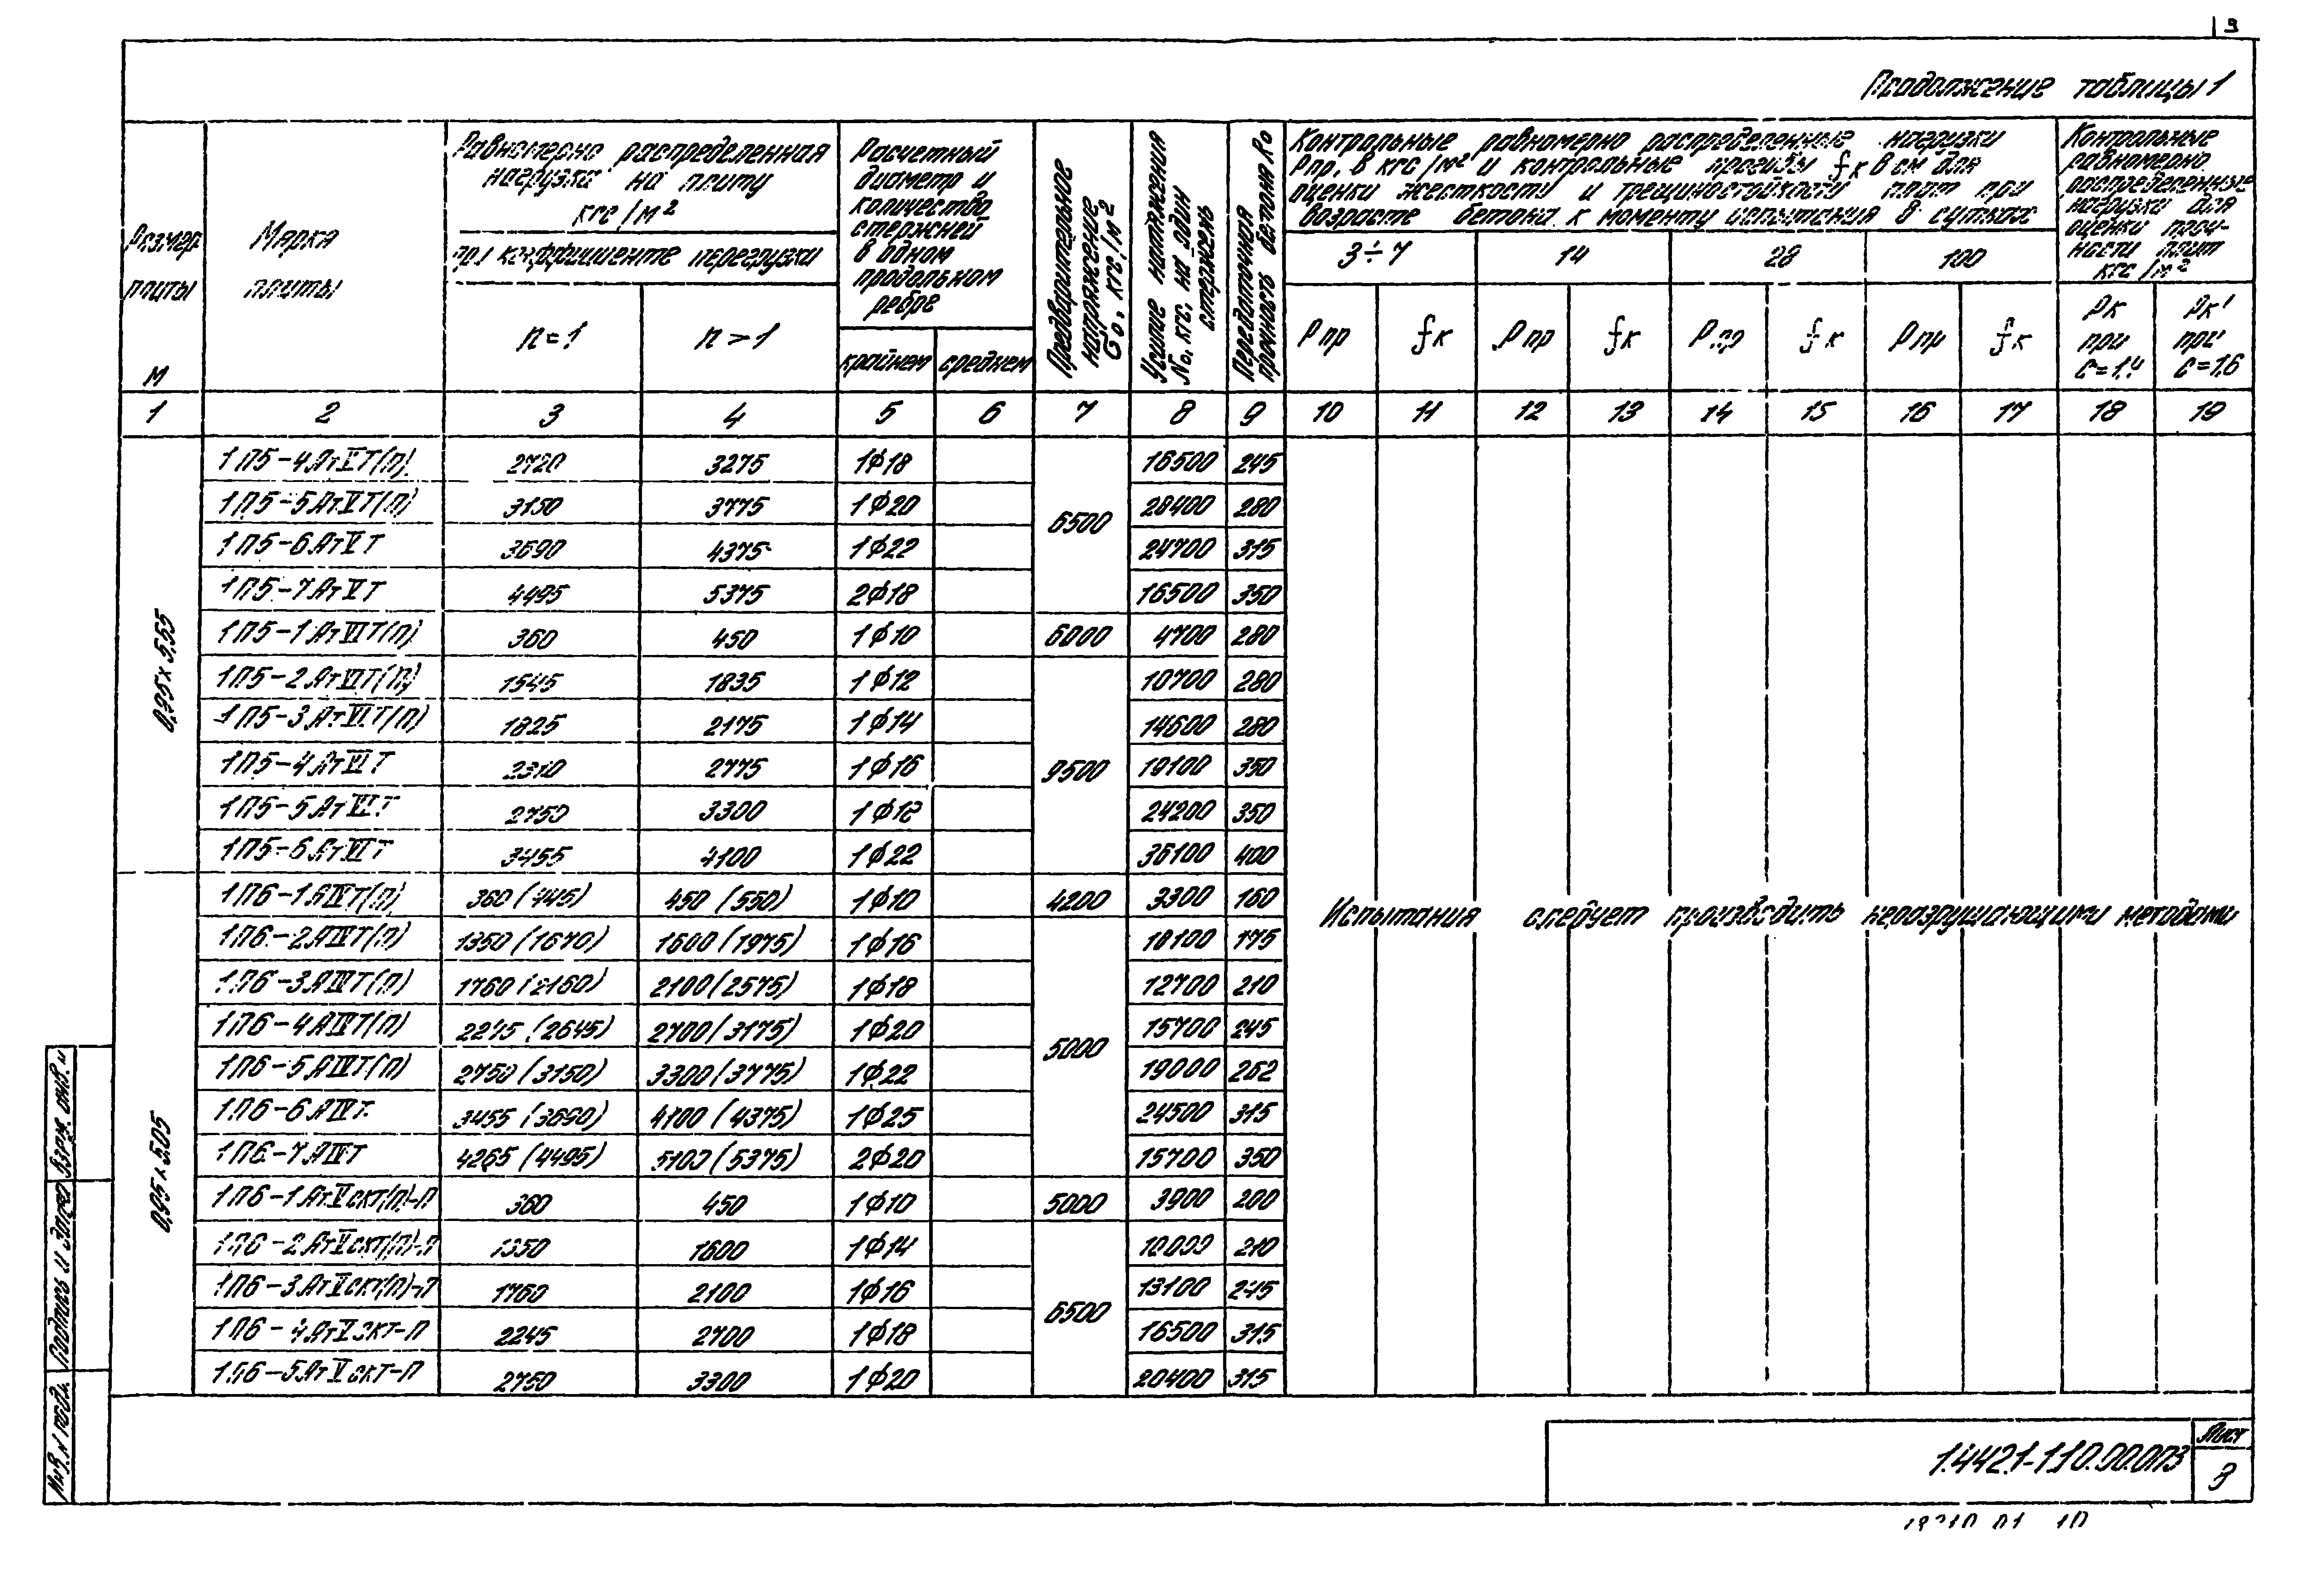 9
Продолжение таблицы 1
Размер плиты м
Марка плиты
Равномерно распределенная нагрузка на плиту кгс/м²
при коэффициенте перегрузки
n=1
n>1
Расчетный диаметр и количество стержней в одном продольном ребре
крайнем
среднем
Предварительное напряжение σо, кгс/м²
Усилие натяжения No, кгс, на один стержень
Передаточная прочность бетона Ro
Контрольные равномерно распределенные нагрузки
Рпр. в кгс/м² и контрольные прогибы fк в см для
оценки жесткости и трещиностойкости плит при
возрасте бетона к моменту испытания в сутках
3÷7 14 28 100
Рпр fк Рпр fк Рпр fк Рпр fк
Контрольные равномерно распределенные нагрузки для оценки прочности плит кгс/м²
Рк при С=1,4
Рк' при С=1,6
1 2 3 4 5 6 7 8 9 10 11 12 13 14 15 16 17 18 19
0,95×5,55
1П5-4АтVТ(п) 2720 3275 1ϕ18 6500 16500 245
1П5-5АтVТ(п) 3150 3775 1ϕ20 20400 280
1П5-6АтVТ 3690 4375 1ϕ22 24700 315
1П5-7АтVТ 4495 5375 2ϕ18 16500 350
1П5-1АтVIТ(п) 360 450 1ϕ10 6000 4700 280
1П5-2АтVIТ(п) 1545 1835 1ϕ12 9500 10700 280
1П5-3АтVIТ(п) 1825 2175 1ϕ14 14600 280
1П5-4АтVIТ 2310 2775 1ϕ16 19100 350
1П5-5АтVIТ 2750 3300 1ϕ18 24200 350
1П5-6АтVIТ 3455 4100 1ϕ22 36100 400
0,95×5,05
1П6-1АIVТ(п) 360 (445) 450 (550) 1ϕ10 4200 3300 160
1П6-2АIVТ(п) 1350 (1670) 1600 (1975) 1ϕ16 5000 10100 175
1П6-3АIVТ(п) 1760 (2160) 2100 (2575) 1ϕ18 12700 210
1П6-4АIVТ(п) 2245 (2645) 2700 (3175) 1ϕ20 15700 245
1П6-5АIVТ(п) 2750 (3150) 3300 (3775) 1ϕ22 19000 262
1П6-6АIVТ 3455 (3690) 4100 (4375) 1ϕ25 24500 315
1П6-7АIVТ 4265 (4495) 5100 (5375) 2ϕ20 15700 350
1П6-1АтVскт(п)-П 360 450 1ϕ10 5000 3900 200
1П6-2АтVскт(п)-П 1350 1600 1ϕ14 6500 10000 210
1П6-3АтVскт(п)-П 1760 2100 1ϕ16 13100 245
1П6-4АтVскт-П 2245 2700 1ϕ18 16500 315
1П6-5АтVскт-П 2750 3300 1ϕ20 20400 315
Испытания следует производить неразрушающими методами
Взам. инв. №
Подпись и дата
Инв. № подл.
1.442.1-1.1 0.00.0ПЗ
Лист
3
10